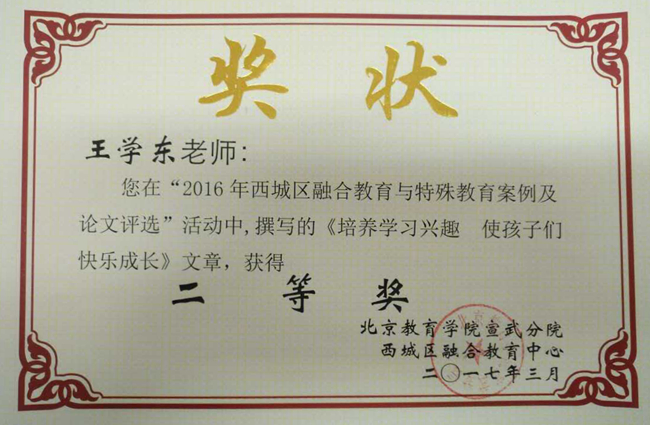 奖状
王学东老师:
您在“2016年西城区融合教育与特殊教育案例及
论文评选”活动中,撰写的《培养学习兴趣 使孩子们
快乐成长》文章，获得
二等奖
北京教育学院宣武分院
西城区融合教育中心
二〇一七年三月